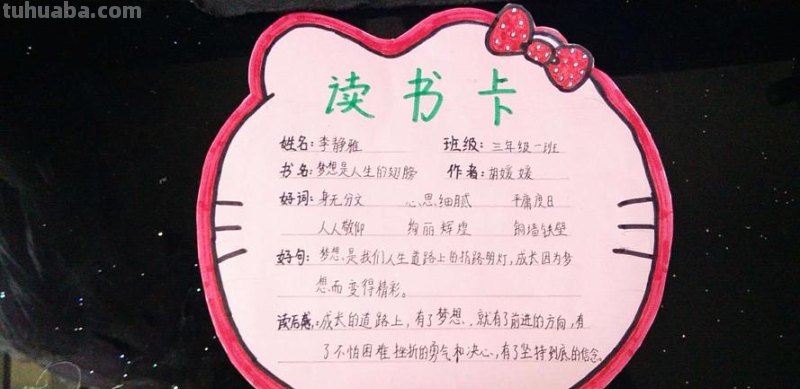 tuhuaba.com
读书卡
姓名：李静雅 班级：三年级一班
书名：梦想是人生的翅膀 作者：胡媛媛
好词：身无分文 心思细腻 平庸度日
人人敬仰 绚丽辉煌 铜墙铁壁
好句：梦想，是我们人生道路上的指路明灯，成长因为梦
想而变得精彩。
读后感：成长的道路上，有了梦想，就有了前进的方向，有
了不怕困难挫折的勇气和决心，有了坚持到底的信念。